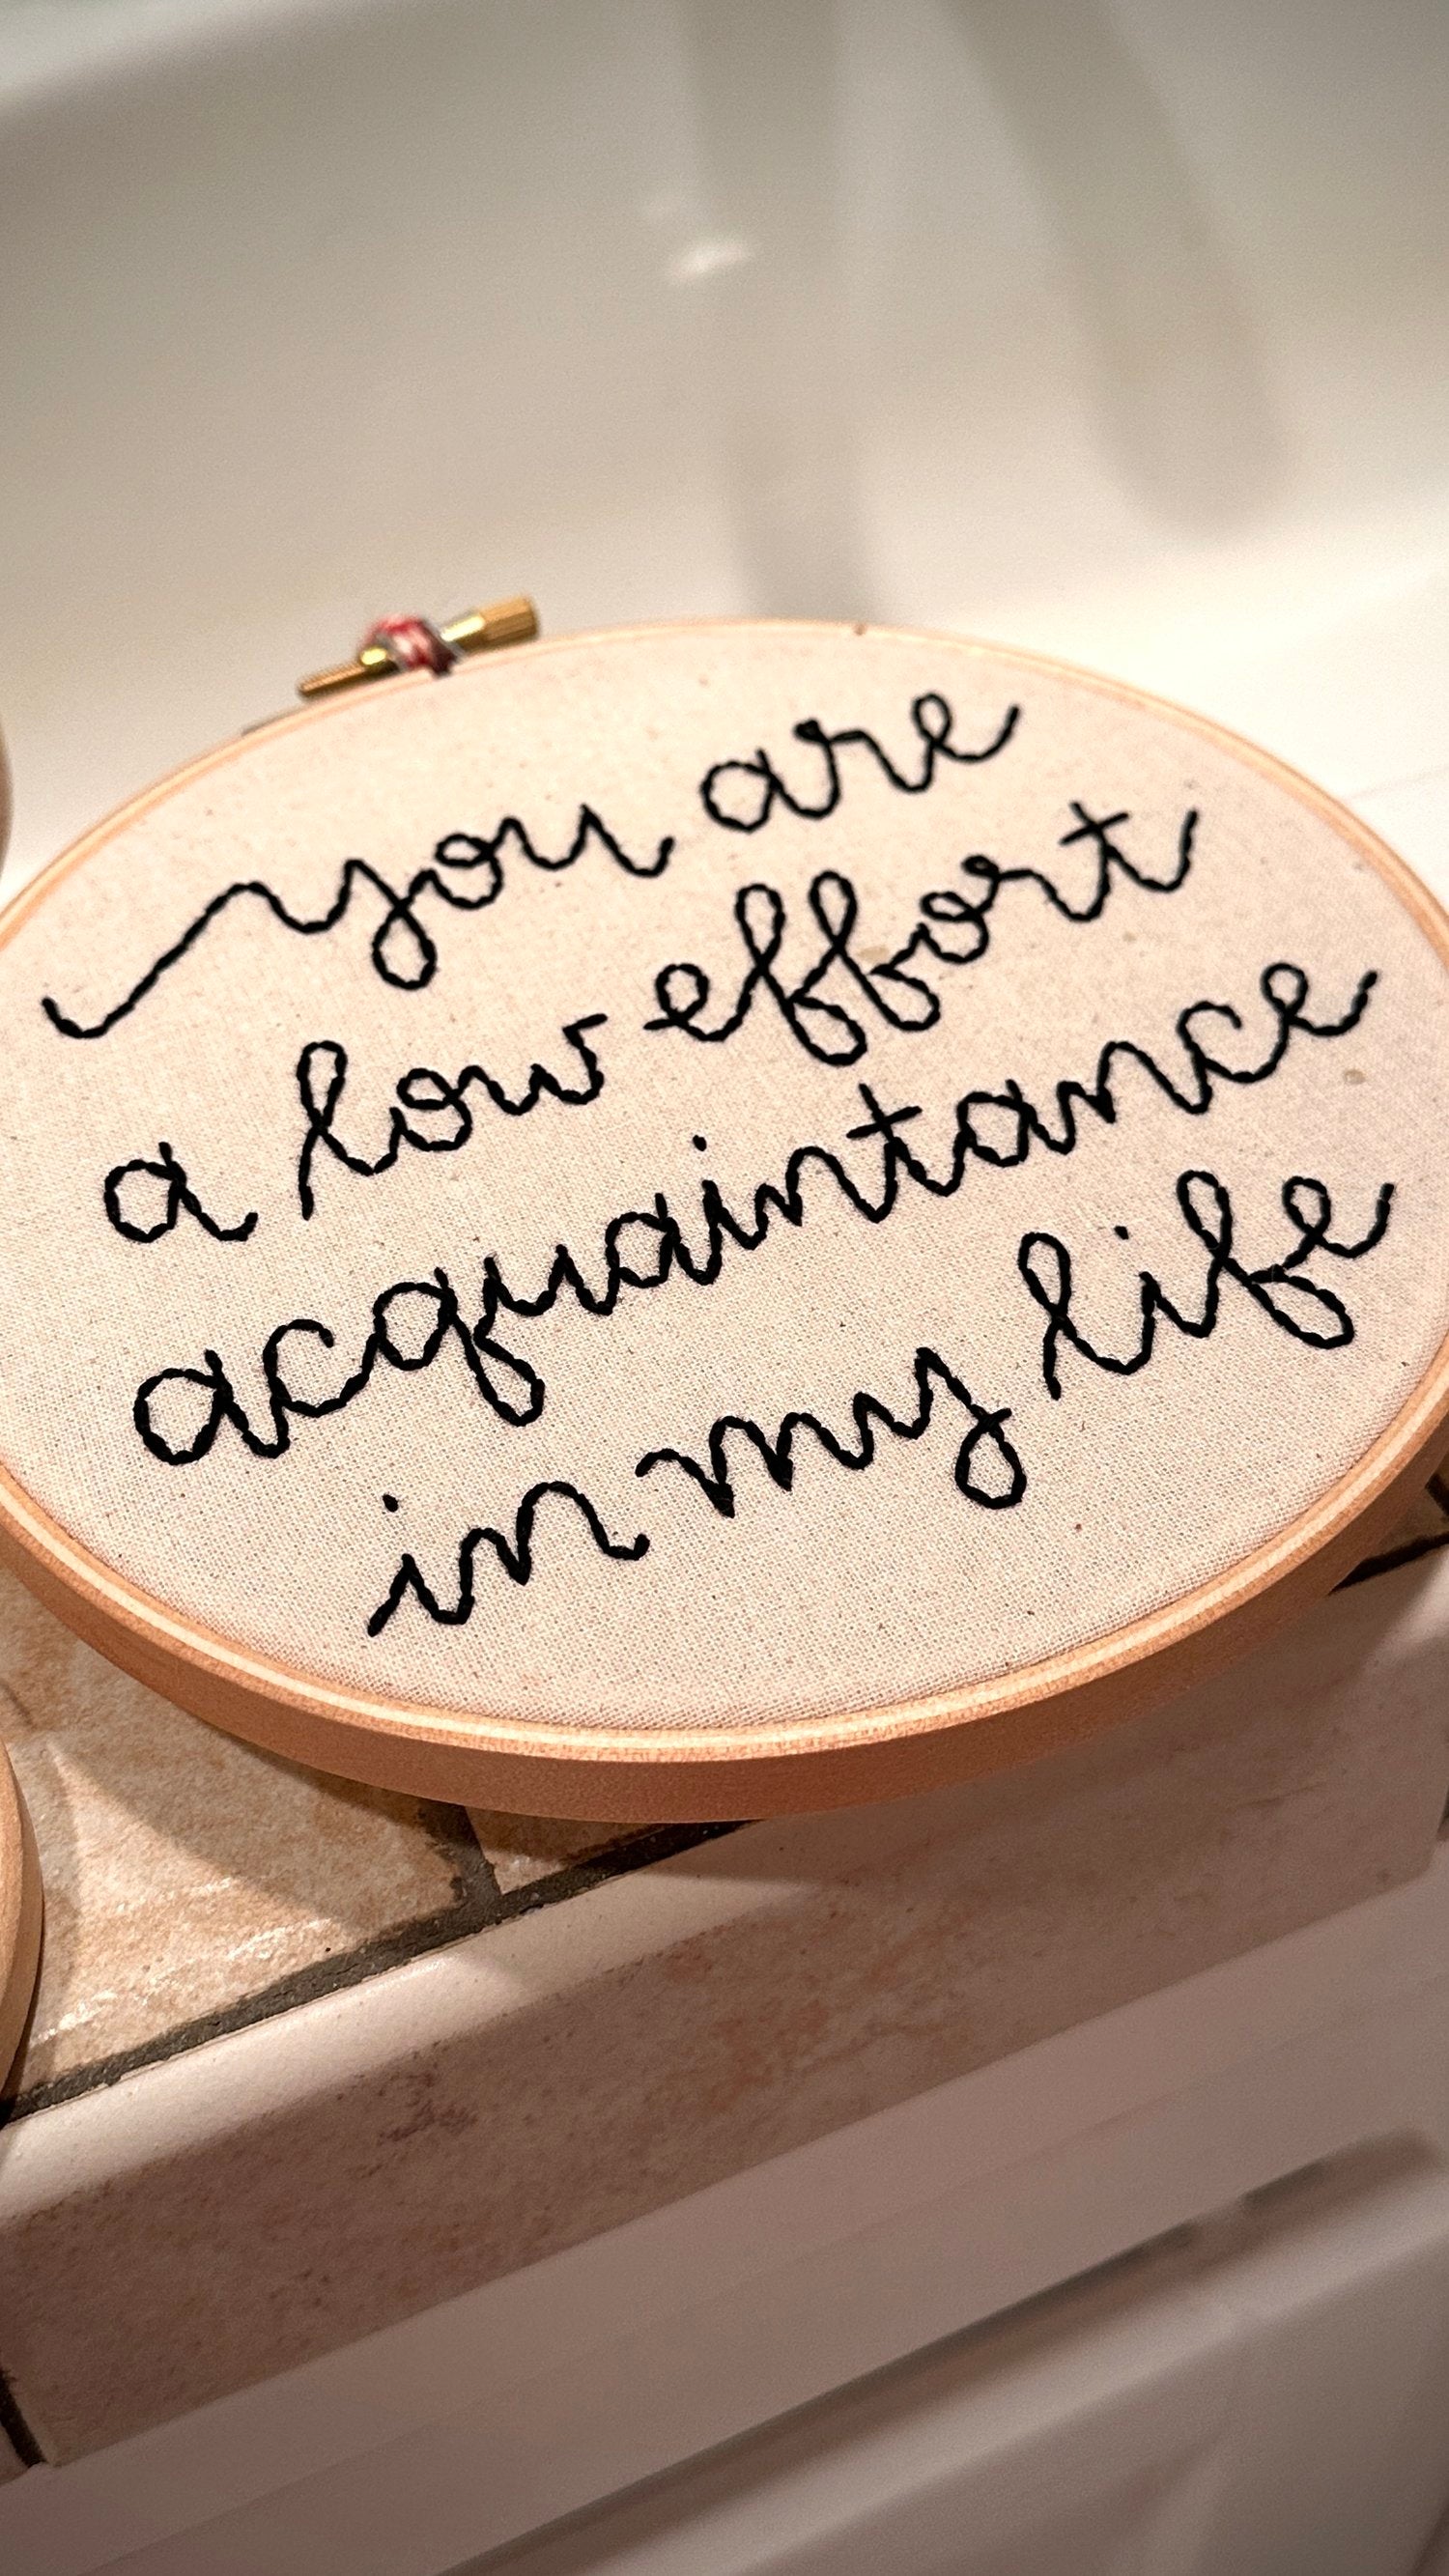 you are
a low effort
acquaintance
in my life